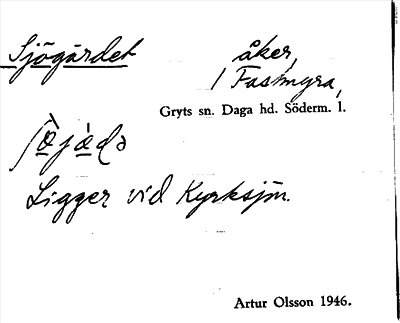 Sjögärdet åker,
/ Fastmyra,
Gryts sn. Daga hd. Söderm. l.
Ligger vid Kyrksjön.
Artur Olsson 1946.